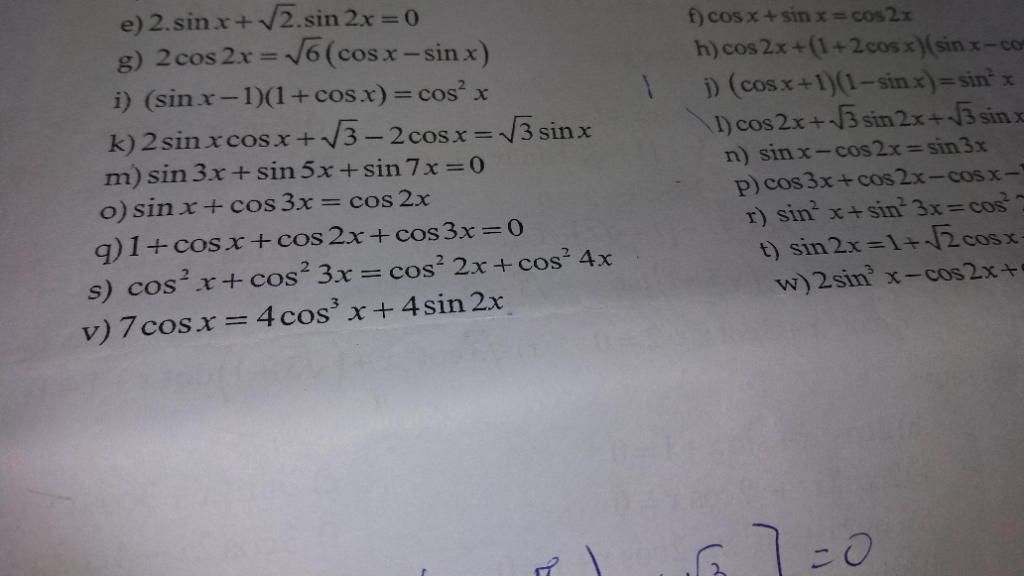 e) 2.sin x + √2.sin 2x = 0
f) cos x + sin x = cos 2x
g) 2 cos 2x = √6 (cos x − sin x)
h) cos 2x + (1 + 2 cos x)(sin x − co
i) (sin x − 1)(1 + cos x) = cos² x
j) (cos x + 1)(1 − sin x) = sin² x
k) 2 sin x cos x + √3 − 2 cos x = √3 sin x
l) cos 2x + √3 sin 2x + √3 sin x
m) sin 3x + sin 5x + sin 7x = 0
n) sin x − cos 2x = sin 3x
o) sin x + cos 3x = cos 2x
p) cos 3x + cos 2x − cos x −
q) 1 + cos x + cos 2x + cos 3x = 0
r) sin² x + sin² 3x = cos²
s) cos² x + cos² 3x = cos² 2x + cos² 4x
t) sin 2x = 1 + √2 cos x
v) 7 cos x = 4 cos³ x + 4 sin 2x
w) 2 sin³ x − cos 2x +
= 0